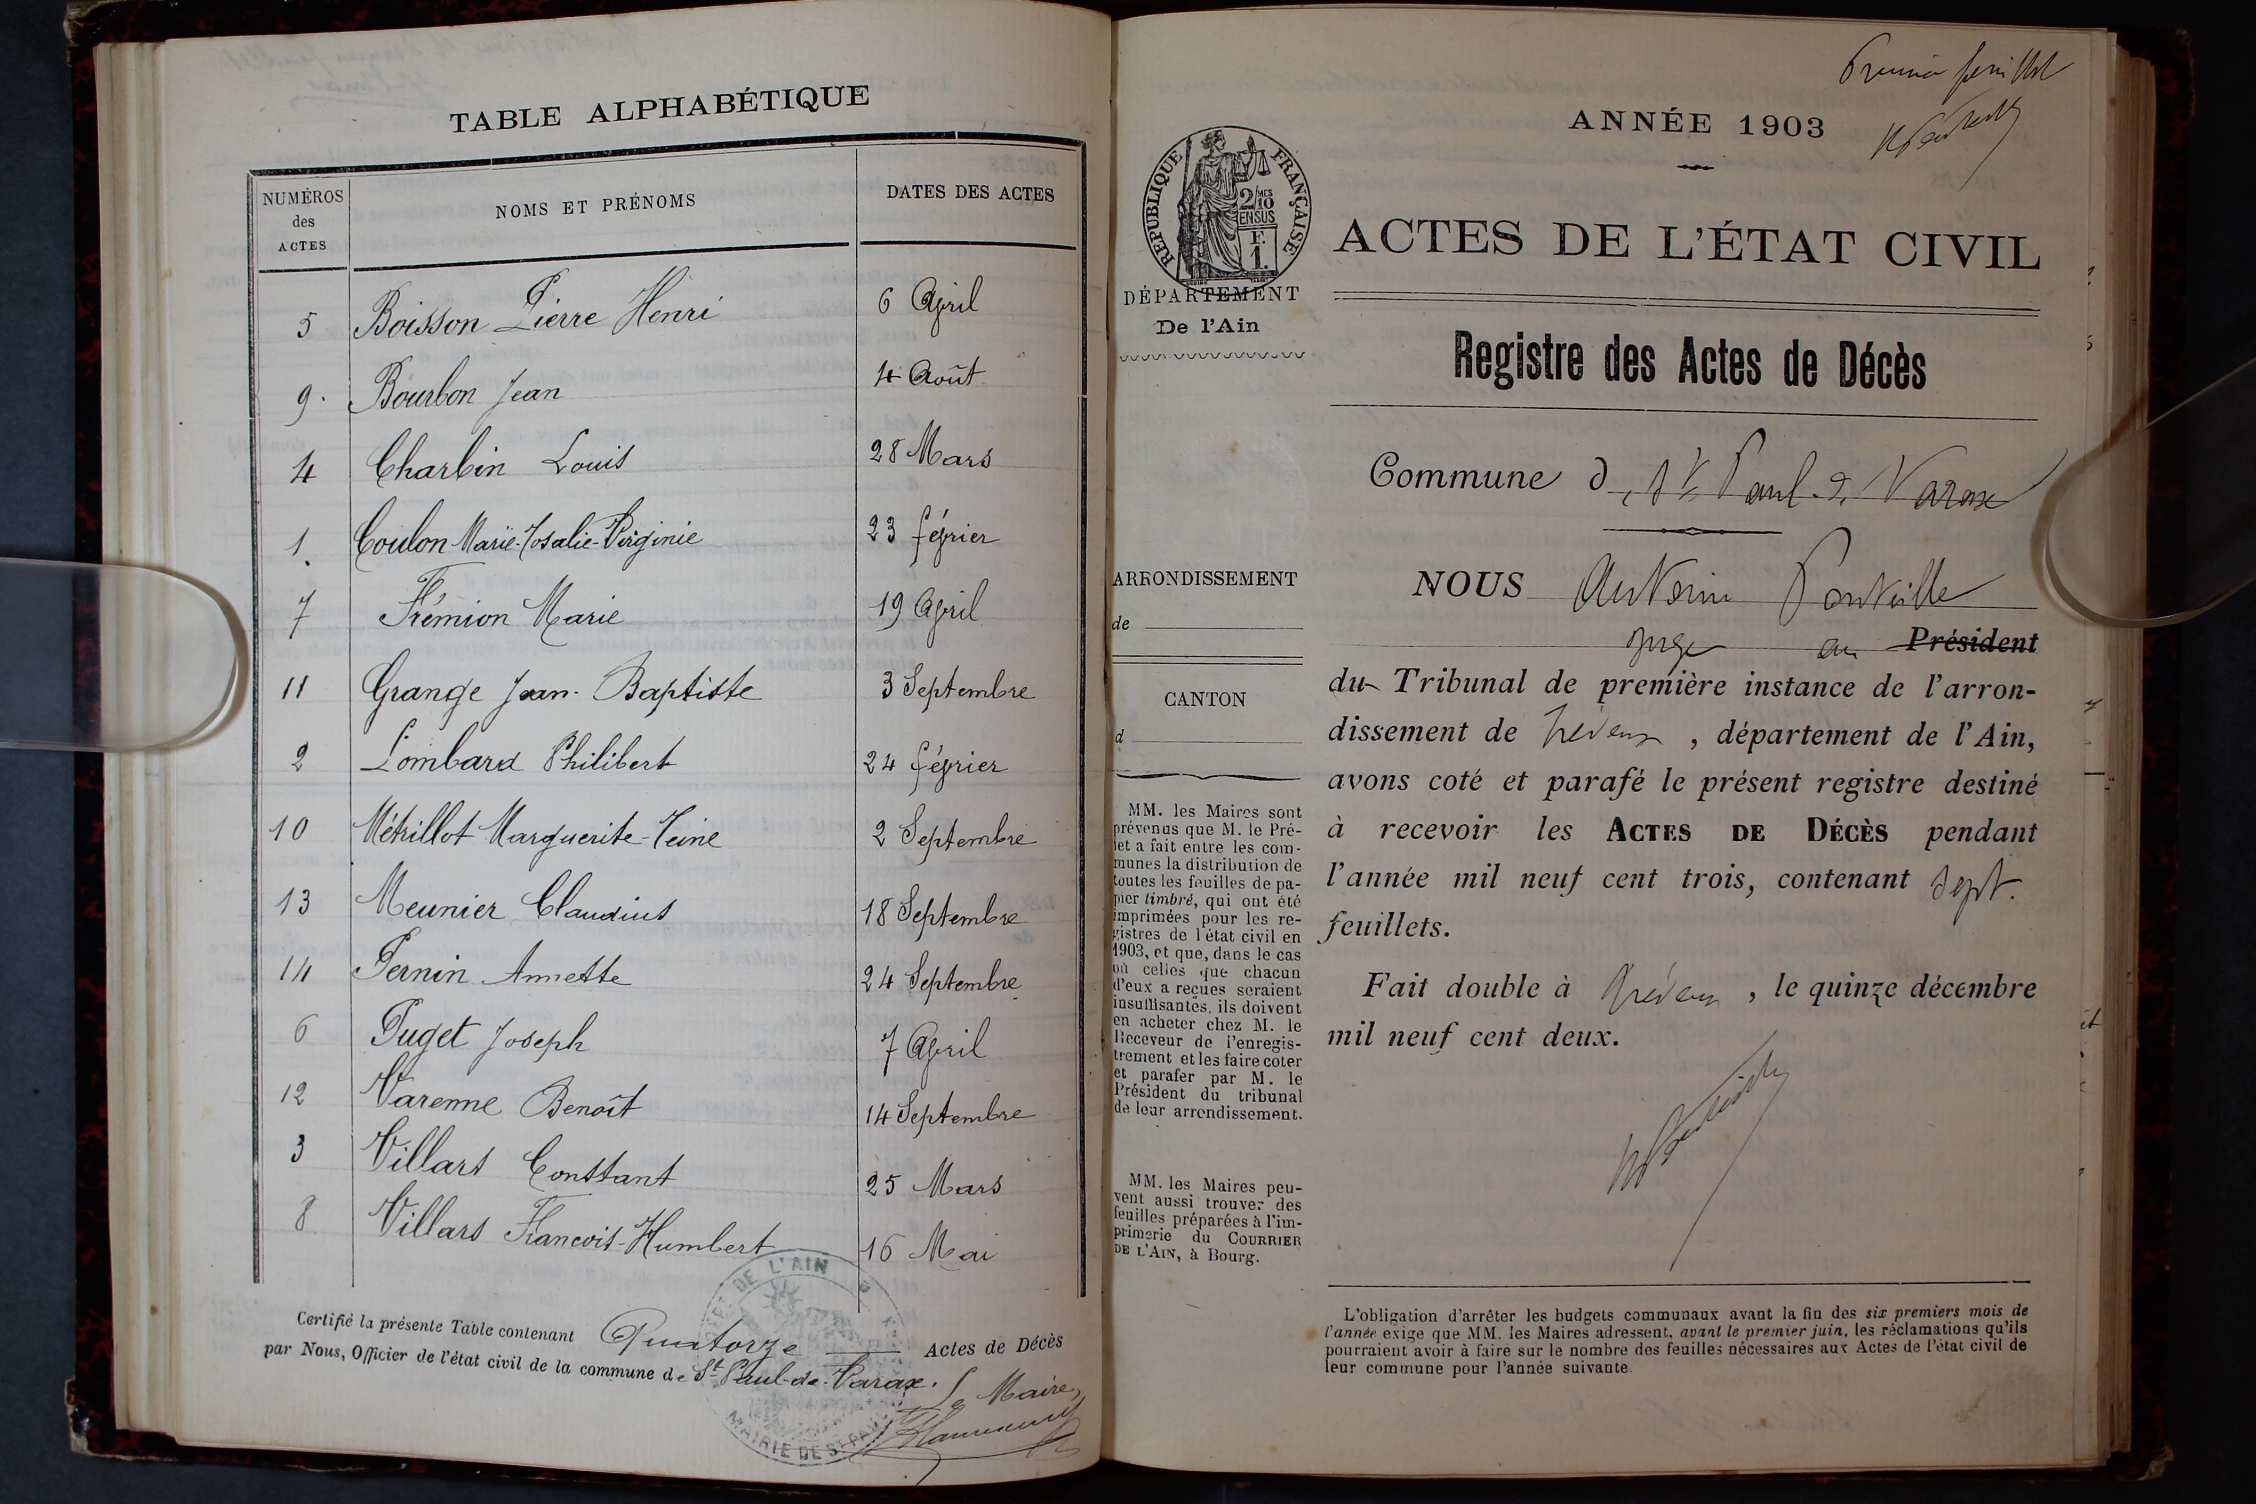 TABLE ALPHABÉTIQUE
NUMÉROS des ACTES
NOMS ET PRÉNOMS
DATES DES ACTES
5 Boisson Pierre Henri 6 Avril
9. Bourbon Jean 4 Août
4 Charbin Louis 28 Mars
1. Coulon Marie-Rosalie-Virginie 23 février
7 Frémion Marie 19 Avril
11 Grange Jean-Baptiste 3 Septembre
2 Lombard Philibert 24 février
10 Métrillot Marguerite-Reine 2 Septembre
13 Meunier Claudius 18 Septembre
14 Pernin Annette 24 Septembre
6 Puget Joseph 7 Avril
12 Varenne Benoît 14 Septembre
3 Villars Constant 25 Mars
8 Villars Francois-Humbert 16 Mai
Certifié la présente Table contenant Quatorze Actes de Décès
par Nous, Officier de l'état civil de la commune de St Paul-de-Varax.
Le Maire,
DE L'AIN
MAIRIE DE ST PAUL
Premier feuillet
ANNÉE 1903
RÉPUBLIQUE FRANÇAISE
2/10 MES
EN SUS
F.
1.
ACTES DE L'ÉTAT CIVIL
DÉPARTEMENT
De l'Ain
Registre des Actes de Décès
Commune d St Paul de Varax
ARRONDISSEMENT
de
CANTON
d
NOUS Antonin
juge au Président
du Tribunal de première instance de l'arron-
dissement de Trévoux, département de l'Ain,
avons coté et parafé le présent registre destiné
à recevoir les ACTES DE DÉCÈS pendant
l'année mil neuf cent trois, contenant sept.
feuillets.
Fait double à Trévoux, le quinze décembre
mil neuf cent deux.
MM. les Maires sont
prévenus que M. le Pré-
fet a fait entre les com-
munes la distribution de
toutes les feuilles de pa-
pier timbré, qui ont été
imprimées pour les re-
gistres de l'état civil en
1903, et que, dans le cas
où celles que chacun
d'eux a reçues seraient
insuffisantes, ils doivent
en acheter chez M. le
Receveur de l'enregis-
trement et les faire coter
et parafer par M. le
Président du tribunal
de leur arrondissement.
MM. les Maires peu-
vent aussi trouver des
feuilles préparées à l'im-
primerie du COURRIER
DE L'AIN, à Bourg.
L'obligation d'arrêter les budgets communaux avant la fin des six premiers mois de
l'année exige que MM. les Maires adressent, avant le premier juin, les réclamations qu'ils
pourraient avoir à faire sur le nombre des feuilles nécessaires aux Actes de l'état civil de
leur commune pour l'année suivante.